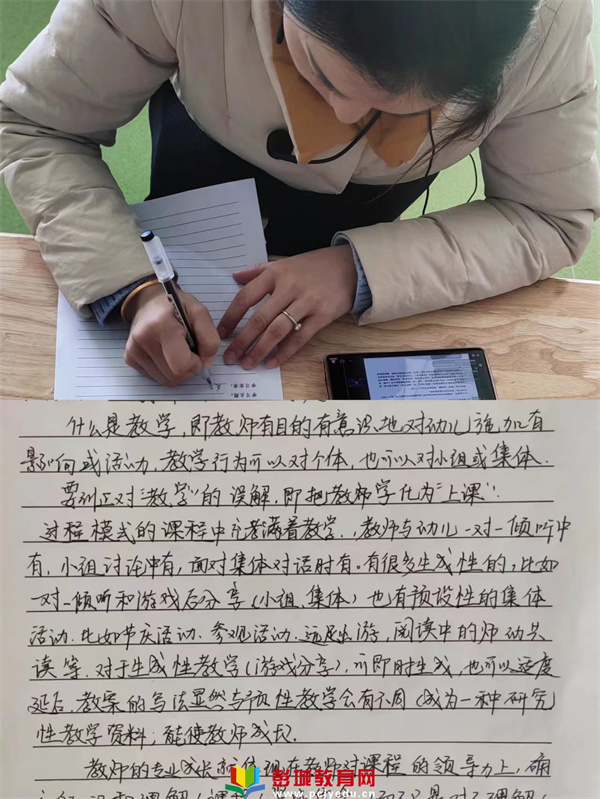 什么是教学,即教师有目的有意识地对幼儿施加有
影响或活动,教学行为可以对个体,也可以对小组或集体.
要纠正对"教学"的误解,即把教师学化为"上课".
过程模式的课程中充满着教学,教师与幼儿一对一倾听中
有,小组讨论中有,面对集体对话时有。有很多生成性的,比如
一对一倾听和游戏后分享(小组、集体)也有预设性的集体
活动.比如节庆活动、参观活动、远足郊游,阅读中的师幼共
读等.对于生成性教学(游戏分享),可即时生成,也可以适度
延后.教案的写法显然与预性教学会有不同(成为一种研究
性教学资料;能使教师成长.
教师的专业成长就体现在教师对课程的领导力上,确
彭城教育网